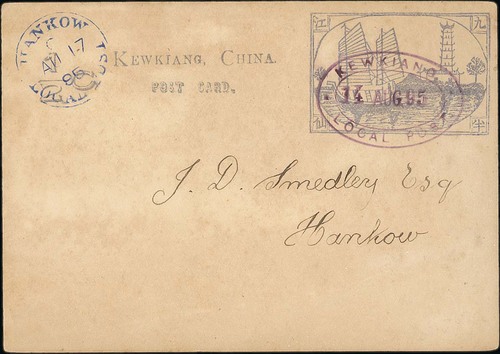 HANKOW
17
95
LOCAL POST
KEWKIANG, CHINA.
POST CARD.
江 九
KEWKIANG
14 AUG 95
LOCAL POST
仙 半
J. D. Smedley Esq
Hankow